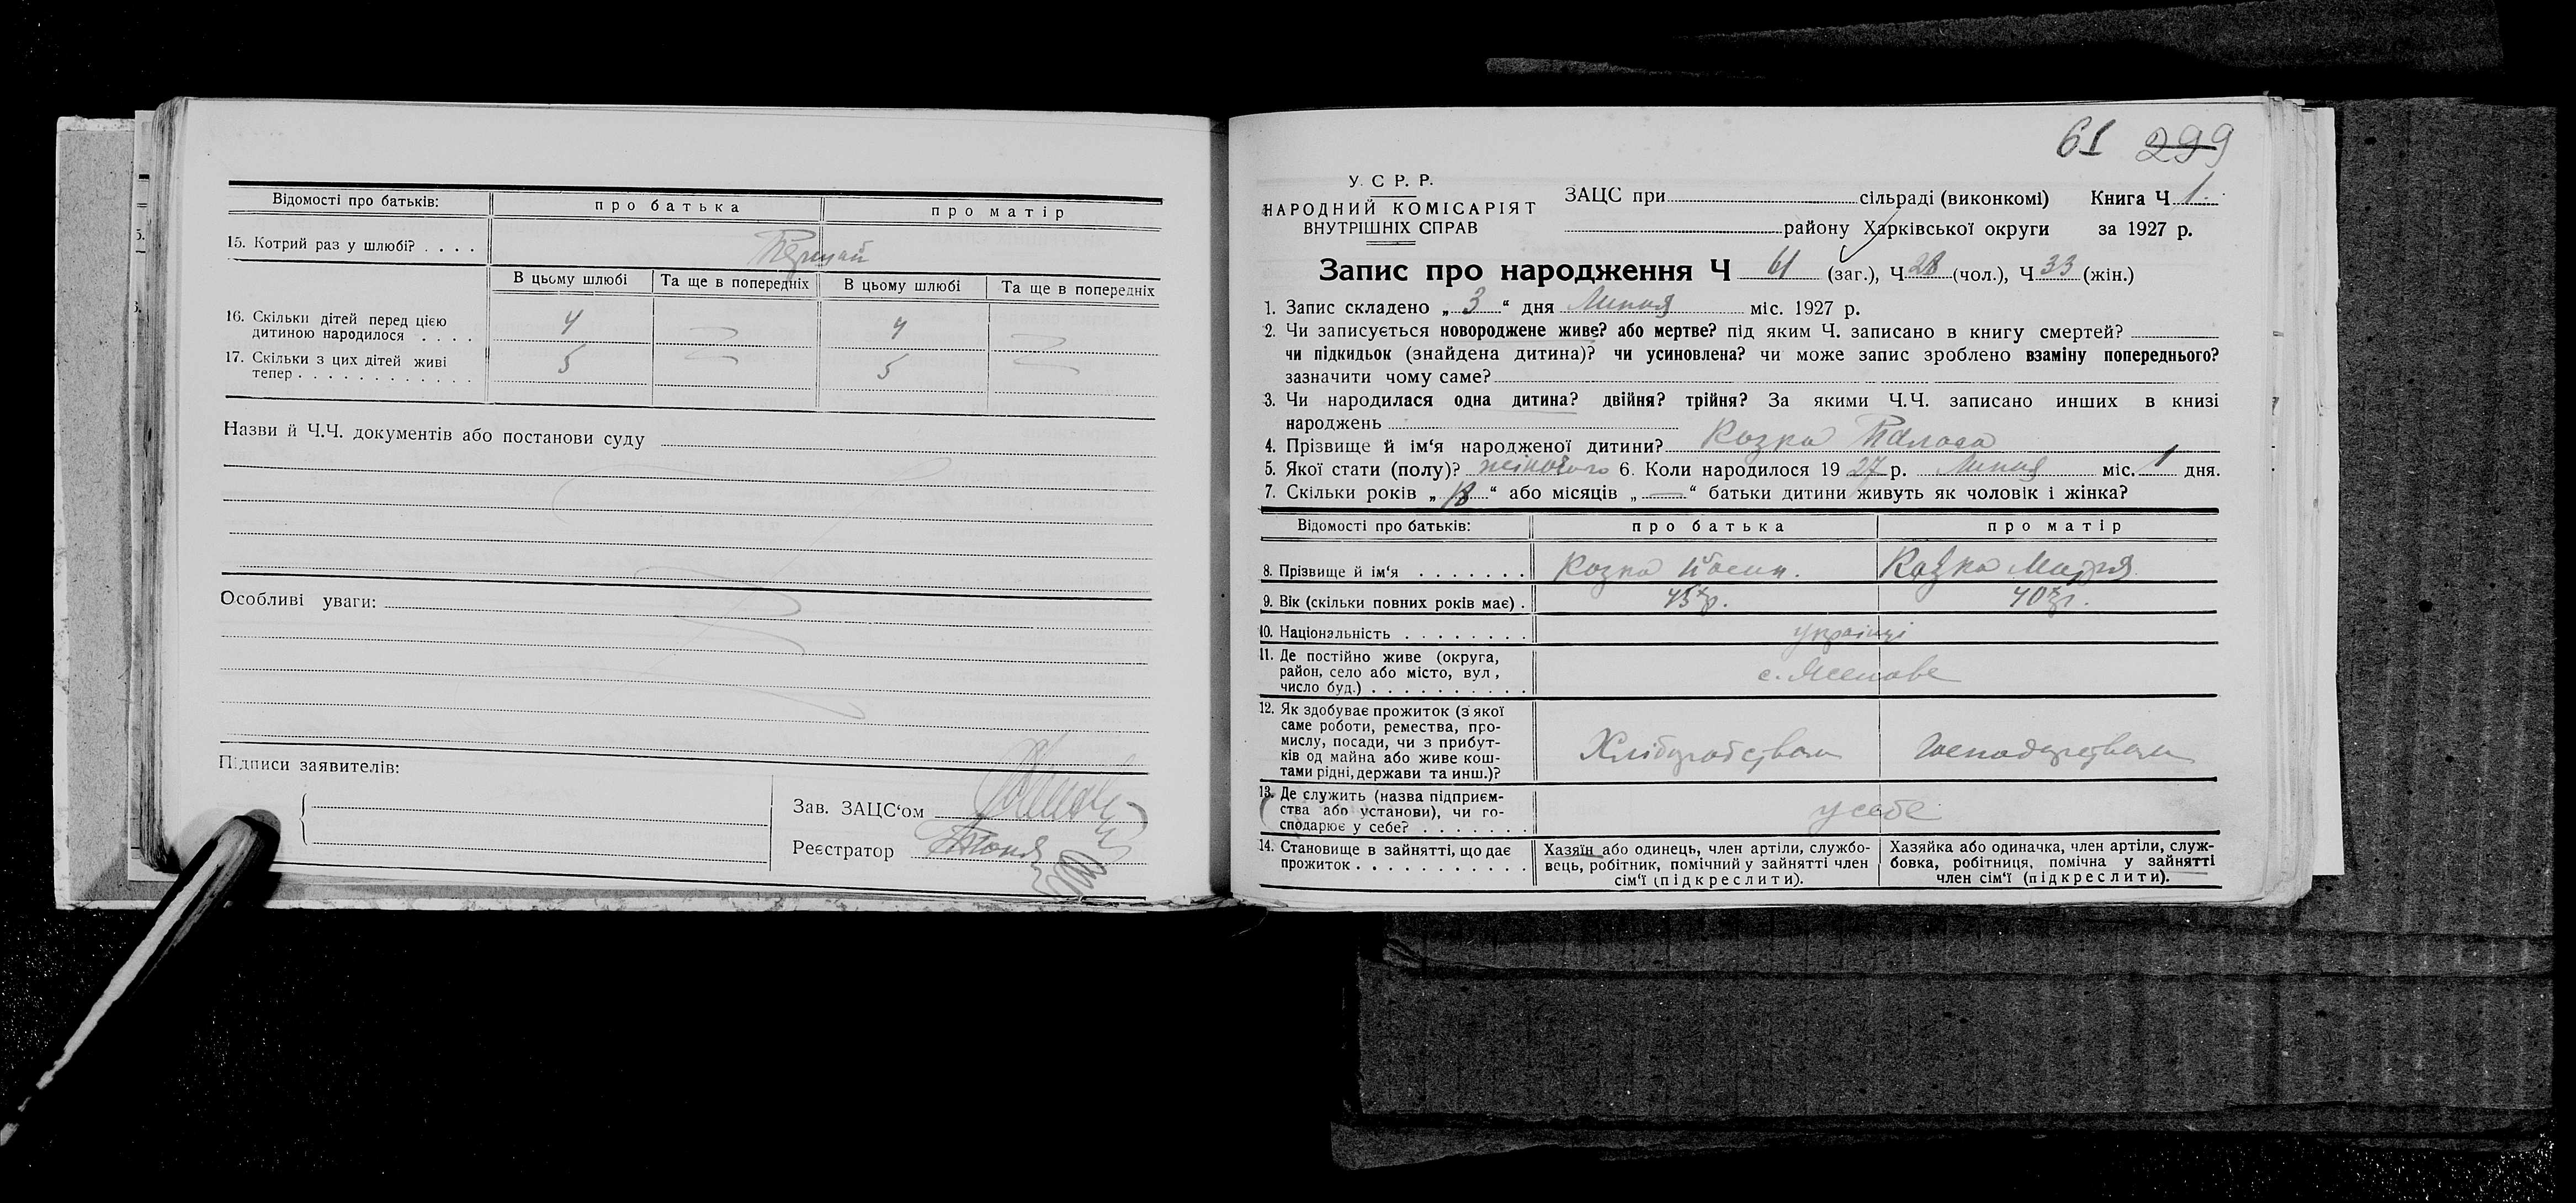 Відомості про батьків: про батька про матір
15. Котрий раз у шлюбі? . . . . Перший
В цьому шлюбі Та ще в попередніх В цьому шлюбі Та ще в попередніх
16. Скільки дітей перед цією
дитиною народилося . . . . 4 — 4 —
17. Скільки з цих дітей живі
тепер . . . . . . . . . . . . 5 — 5 —
Назви й Ч.Ч. документів або постанови суду
Особливі уваги:
Підписи заявителів:
Зав. ЗАЦС‘ом
Реєстратор
61 299
У. С Р. Р.
НАРОДНИЙ КОМІСАРІЯТ
ВНУТРІШНІХ СПРАВ
ЗАЦС при сільраді (виконкомі) Книга Ч 1.
району Харківської округи за 1927 р.
Запис про народження Ч 61 (заг.), Ч 28 (чол.), Ч 33 (жін.)
1. Запис складено „ 3 “ дня Липня міс. 1927 р.
2. Чи записується новороджене живе? або мертве? під яким Ч. записано в книгу смертей?
чи підкидьок (знайдена дитина)? чи усиновлена? чи може запис зроблено взаміну попереднього?
зазначити чому саме?
3. Чи народилася одна дитина? двійня? трійня? За якими Ч.Ч. записано инших в книзі
народжень
4. Прізвище й ім‘я народженої дитини? Козка
5. Якої стати (полу)? жіночого 6. Коли народилося 19 27 р. Липня міс. 1 дня.
7. Скільки років „ 18 “ або місяців „ — “ батьки дитини живуть як чоловік і жінка?
Відомості про батьків: про батька про матір
8. Прізвище й ім‘я . . . . . . . Козка Йосип. Козка Марія
9. Вік (скільки повних років має) . 45 р. 40 р.
10. Національність . . . . . . . . українці
11. Де постійно живе (округа,
район, село або місто, вул,
число буд.) . . . . . . . . . . с. Ясенове
12. Як здобуває прожиток (з якої
саме роботи, ремества, про-
мислу, посади, чи з прибут-
ків од майна або живе кош-
тами рідні, держави та инш.)? Хліборобством Господарством
13. Де служить (назва підприєм-
ства або установи), чи го-
сподарює у себе? . . . . . . . у себе
14. Становище в зайнятті, що дає
прожиток . . . . . . . . . . .
Хазяїн або одинець, член артілі, службо-
вець, робітник, помічний у зайнятті член
сім‘ї (підкреслити).
Хазяйка або одиначка, член артілі, служ-
бовка, робітниця, помічна у зайнятті
член сім‘ї (підкреслити).